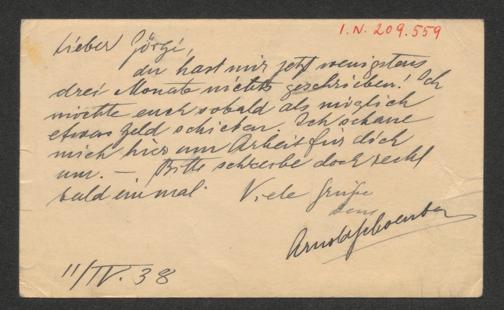 I.N. 209.559
Lieber Görgi,
du hast mir jetzt wenigstens
drei Monate nichts geschrieben! Ich
möchte euch sobald als möglich
etwas Geld schicken. Ich schaue
mich hier um Arbeit für dich
um. — Bitte schreibe doch recht
bald einmal. Viele Grüße
dein
Arnold Schoenberg
11/IV. 38